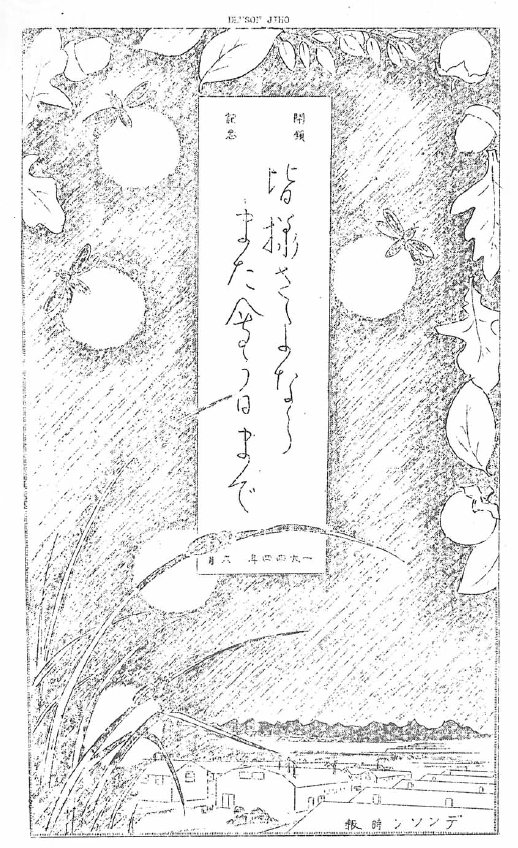 DENSON JIHO
閉鎖
記念
皆様さよなら
また會う日まで
一九四四年 六月
デンソン時報